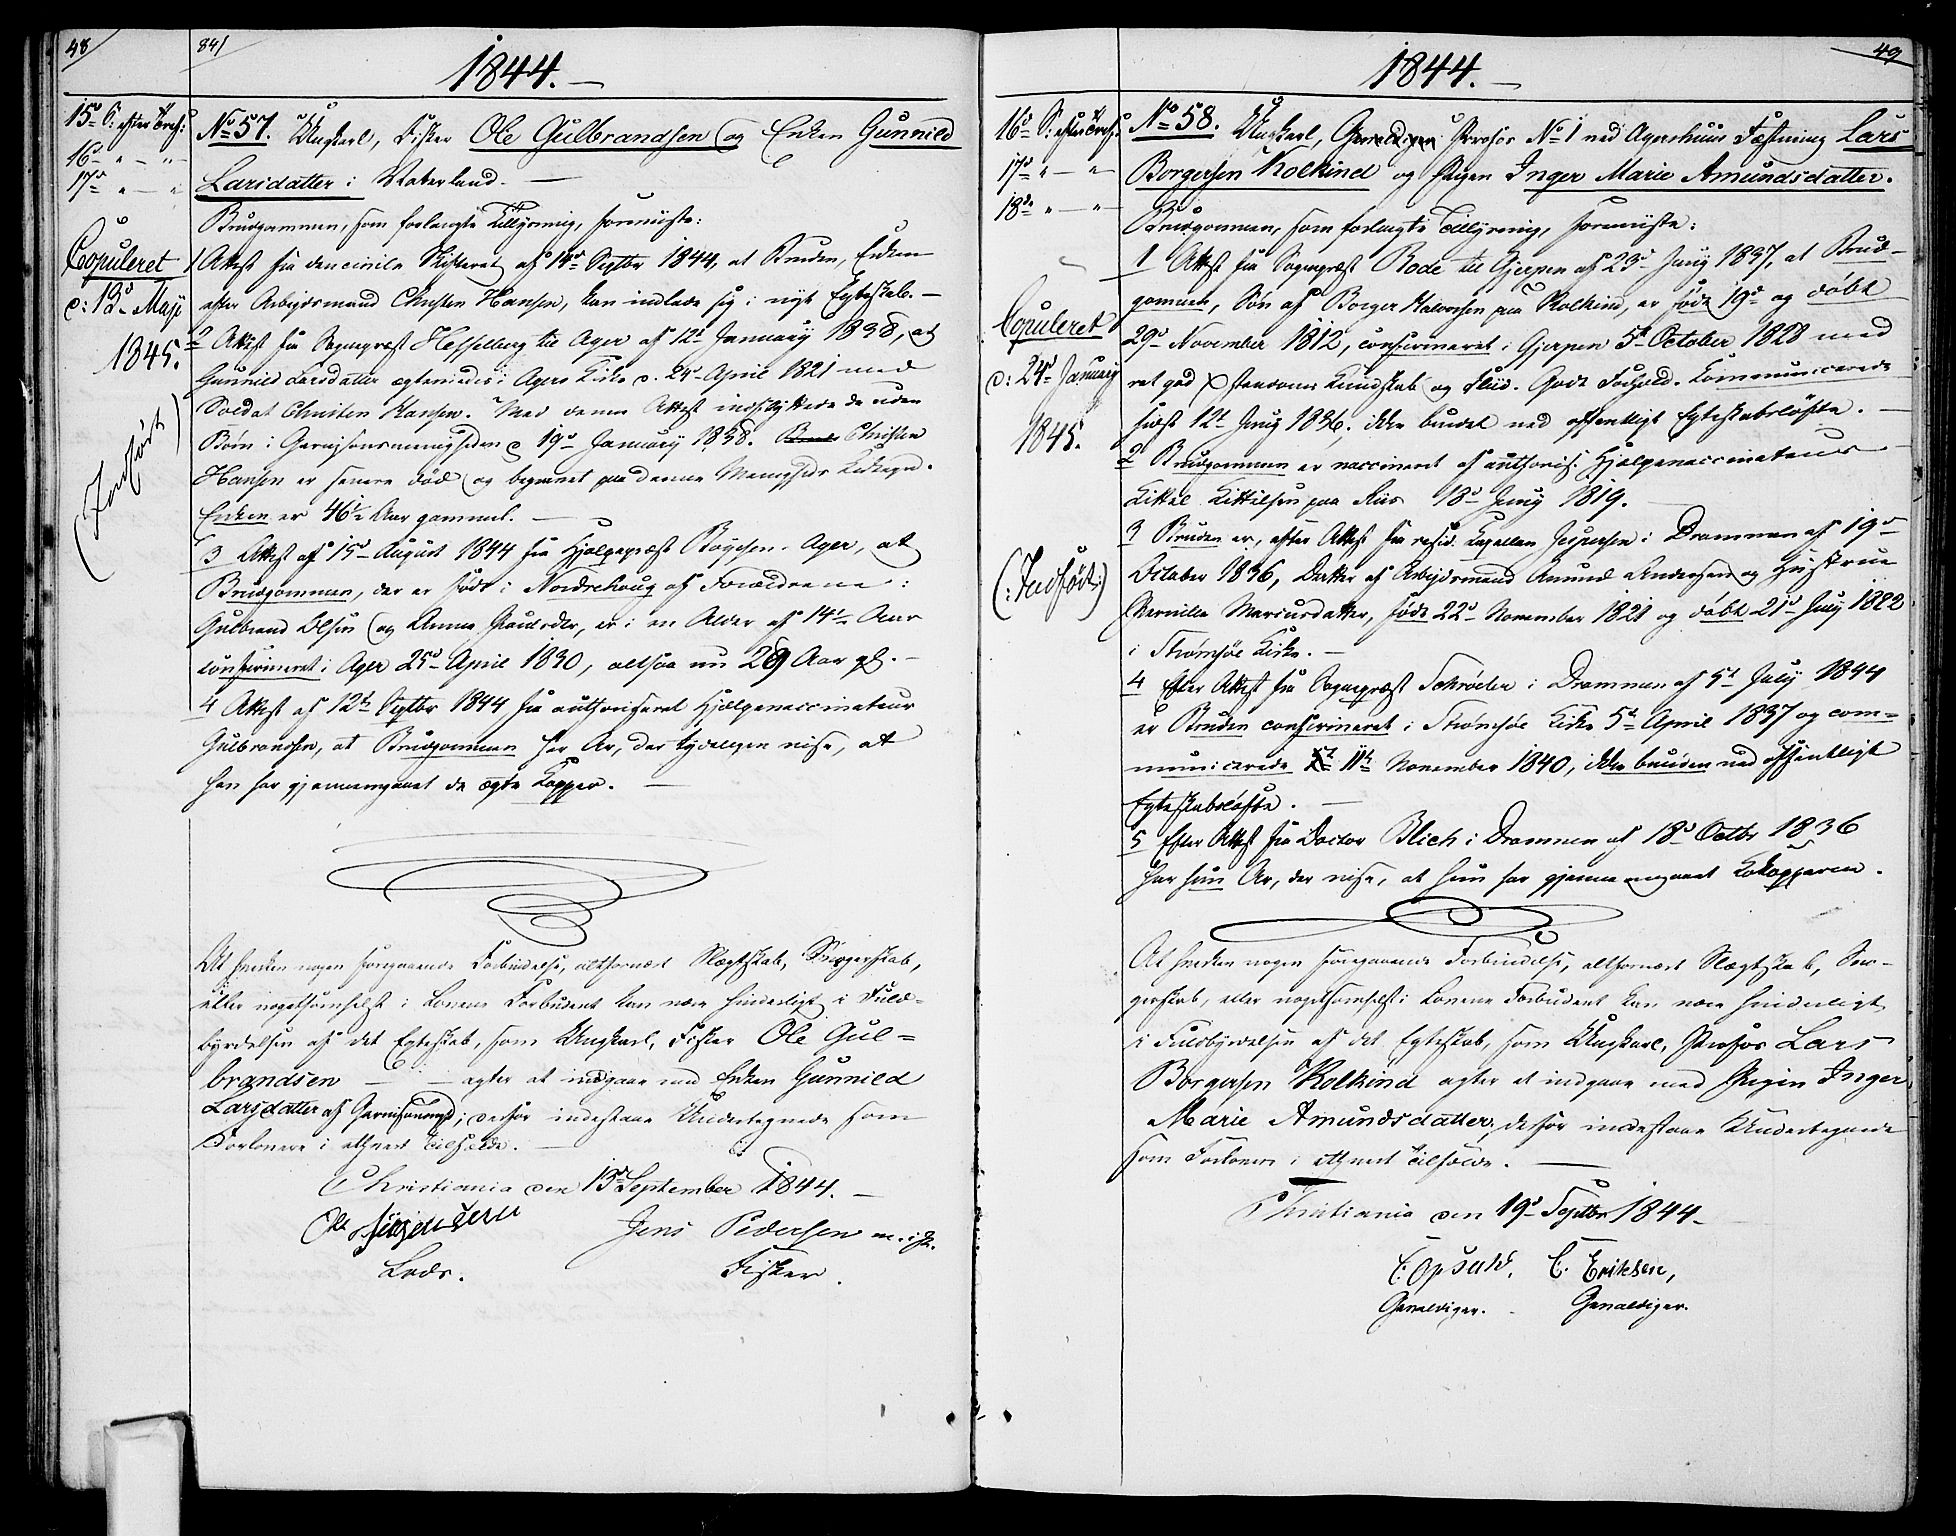 48
841
1844.
15d S. efter Tref:
16d " — "
17d " — "
Copuleret
d: 13d Maji
1845.
(Indført)
No 57. Ungkarl, Fisker Ole Gulbrandsen og Enken Gunnild
Larsdatter i Vaterland. —
Brudgommen, som forlangte Tillysning, foreviiste:
1 Attest fra den civile Skifteret af 14d Septbr 1844, at Bruden, Enken
efter Arbeidsmand Christen Hansen, kan indlade sig i nyt Egteskab. —
2 Attest fra Sognepræst Hesselberg til Ager af 12t January 1838, at
Gunnild Larsdatter egteviedes i Agers Kirke d. 24d April 1821 med
Soldat Christen Hansen. Med denne Attest indflyttede de uden
Børn i Garnisonsmenigheden d 19d January 1838. Christen
Hansen er senere død og begravet paa denne Menigheds Kirkegd.
Enken er 46½ Aar gammel. —
3 Attest af 15d August 1844 fra Hjelpepræst Røyesen - Ager, at
Brudgommen, der er født i Nordrehoug af Forældrene:
Gulbrand Olsen og Anne Paulsdr, er i en Alder af 14½ Aar
confirmeret i Ager 25d April 1830, altsaa nu 29 Aar gl. —
4 Attest af 12t Septbr 1844 fra authoriseret Hjelpevaccinateur
Gulbrandsen, at Brudgommen har Ar, der tydeligen vise, at
han har gjennemgaaet de ægte Kopper. —
At hverken nogen foregaaende Forbindelse, altfornært Slægtskab, Svogerskab,
eller nogetsomhelst i Lovene Forbudent kan være hinderligt i Fuld-
byrdelsen af det Egteskab, som Ungkarl, Fisker Ole Gul-
brandsen — — agter at indgaae med Enken Gunnild
Larsdatter af Garnisonsmgd; derfor indestaae Undertegnede som
Forlovere i ethvert Tilfælde. —
Christiania den 13d September 1844. —
Ole Jørgensen Jens Pedersen m. i P.
Lods. Fisker.
49
1844.
16d S: efter Tref:
17d " — "
18d " — "
Copuleret
d: 24d January
1845.
(: Indført :)
No 58. Ungkarl, Gevaldiger Profos No 1 ved Agershuus Fæstning Lars
Borgersen Kolkind og Pigen Inger Marie Amundsdatter.
Brudgommen, som forlangte Tillysning, foreviiste:
1 Attest fra Sognepræst Rode til Gjerpen af 23d Juny 1837, at Brud-
gommen, Søn af Borger Halvorsen paa Kolkind, er født 19d og døbt
29d November 1812, confirmeret i Gjerpen 5t October 1828 med
ret god Christendoms Kundskab og Flid. Godt Forhold. Kommunicerede
sidst 12t Juny 1836; ikke bundet ved offentligt Egteskabsløfte. —
2 Brudgommen er vaccineret af authoris. Hjelpevaccinateur
Kittel Kittelsen paa Riis 18d Juny 1819.
3 Bruden er, efter Attest fra resid. Kapellan Jespersen i Drammen af 19d
October 1836, Datter af Arbeidsmand Amund Andersen og Hustrue
Pernille Marcusdatter, født 22d November 1821 og døbt 21d July 1822
i Strømsøe Kirke. —
4 Efter Attest fra Sognepræst Schrøder i Drammen af 5t July 1844
er Bruden confirmeret i Strømsøe Kirke 5t April 1837 og com-
municerede 11te November 1840, ikke bunden ved offentligt
Egteskabsløfte. —
5 Efter Attest fra Doctor Blich i Drammen af 18d Octbr 1836
har hun Ar, der vise, at hun har gjennemgaaet Kokopperne.
At hverken nogen foregaaende Forbindelse, altfornært Slægtskab, Svo-
gerskab, eller nogetsomhelst i Lovene Forbudent kan være hinderligt
i Fuldbyrdelsen af det Egteskab, som Ungkarl, Profos Lars
Borgersen Kolkind agter at indgaae med Pigen Inger
Marie Amundsdatter, derfor indestaae Undertegnede
som Forlovere i ethvert Tilfælde. —
Christiania den 19d Septbr 1844 —
C. Opsahl. C. Eriksen,
Gevaldiger. Gevaldiger.